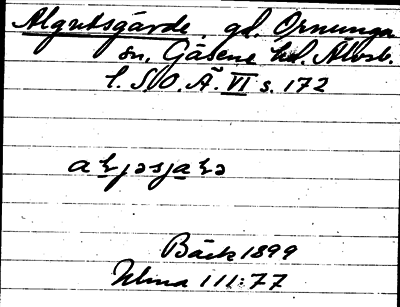 Algutsgärde gd. Ornunga
sn. Gäsene hd. Älvsb.
l. S.O.Ä. VI s. 172
Bäck 1899
Ulma 111:77